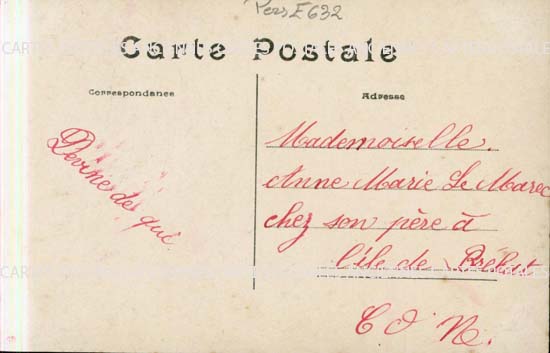 Pers E 632
Carte Postale
Correspondance
Adresse
Devine de qui
Mademoiselle.
Anne Marie Le Marec
chez son père à
l'île de Bréhat
C d N.